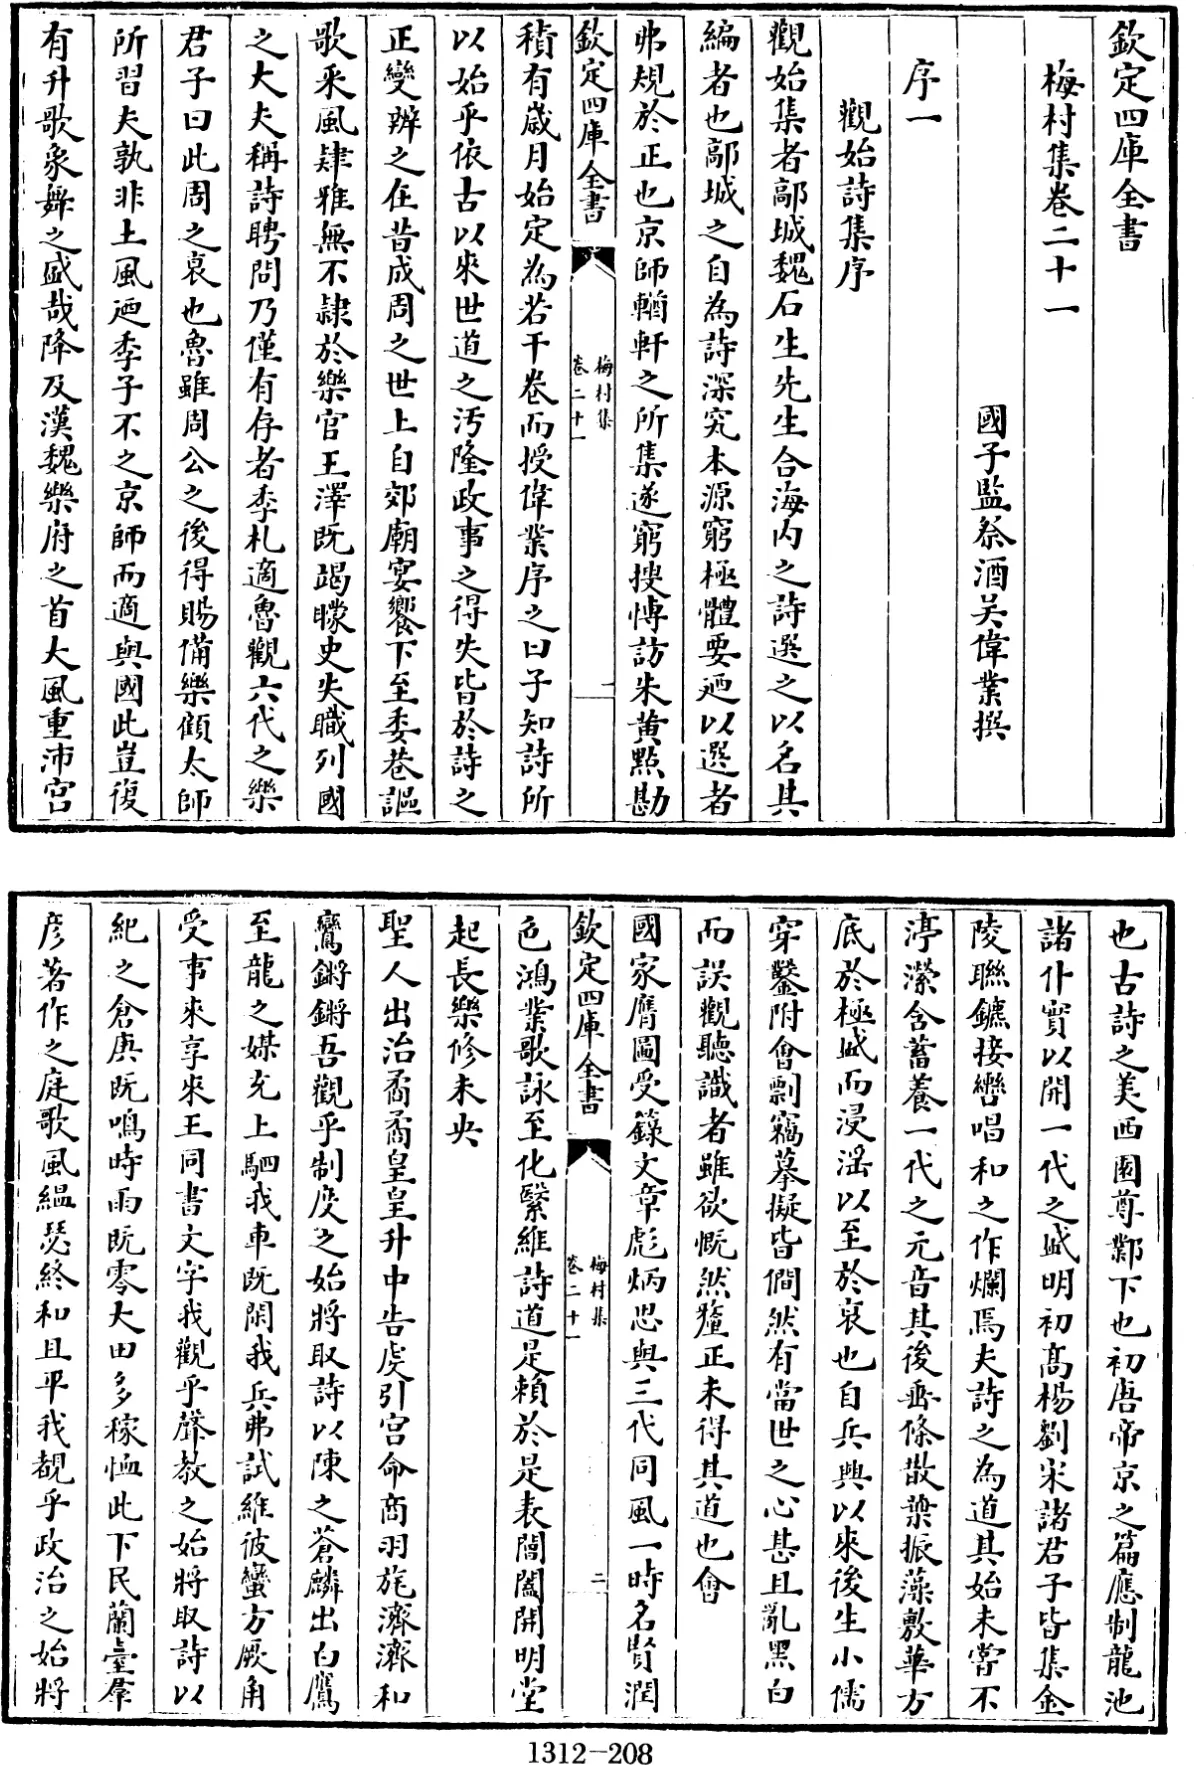 欽定四庫全書
梅村集卷二十一
國子監祭酒吳偉業撰
序一
觀始詩集序
觀始集者鄗城魏石生先生合海内之詩選之以名其
編者也鄗城之自為詩深究本源窮極體要迺以選者
弗規於正也京師輶軒之所集遂窮搜博訪朱黄點勘
欽定四庫全書
梅村集
卷二十一
一
積有歲月始定為若干卷而授偉業序之曰子知詩所
以始乎依古以來世道之汚隆政事之得失皆於詩之
正變辨之在昔成周之世上自郊廟宴饗下至委巷謳
歌采風肄雅無不隷於樂官王澤既竭矇史失職列國
之大夫稱詩聘問乃僅有存者季札適魯觀六代之樂
君子曰此周之衰也魯雖周公之後得賜備樂顧太師
所習夫孰非土風迺季子不之京師而適與國此豈復
有升歌象舞之盛哉降及漢魏樂府之首大風重沛宫
也古詩之美西園尊鄴下也初唐帝京之篇應制龍池
諸什實以開一代之盛明初髙楊劉宋諸君子皆集金
陵聯鑣接轡唱和之作爛焉夫詩之為道其始未嘗不
渟瀠含蓄養一代之元音其後垂條散葉振藻敷華方
底於極盛而浸淫以至於衰也自兵興以來後生小儒
穿鑿附會剽竊摹擬皆僴然有當世之心甚且亂黑白
而誤觀聽識者雖欲慨然釐正未得其道也會
國家膺圖受籙文章彪炳思與三代同風一時名賢潤
欽定四庫全書
梅村集
卷二十一
二
色鴻業歌詠至化繄維詩道是賴於是表閶闔開明堂
起長樂修未央
聖人出治矞矞皇皇升中告虔引宫命商羽旄濟濟和
鸞鏘鏘吾觀乎制度之始將取詩以陳之蒼麟出白鴈
至龍之媒充上駟我車既閑我兵弗試維彼蠻方厥角
受事來享來王同書文字我觀乎聲教之始將取詩以
紀之倉庚既鳴時雨既零大田多稼恤此下民蘭臺羣
彦著作之庭歌風緼瑟終和且平我覩乎政治之始將
1312-208